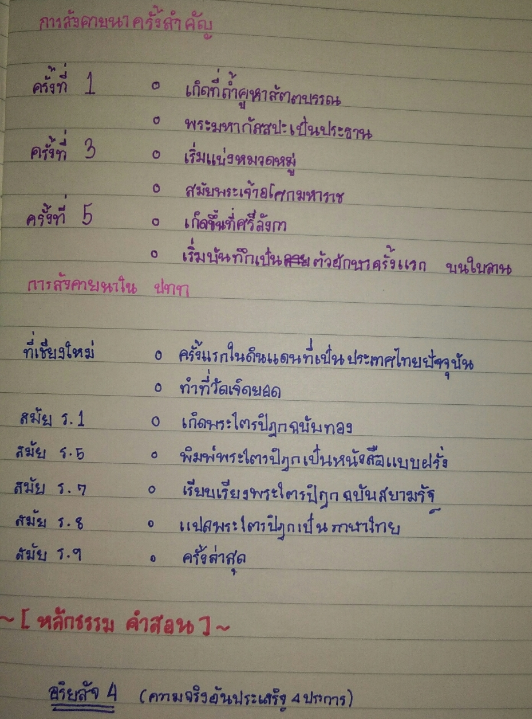 การสังคายนาครั้งสำคัญ
ครั้งที่ 1 ๐ เกิดที่ถ้ำคูหาสัตตบรรณ
๐ พระมหากัสสปะเป็นประธาน
ครั้งที่ 3 ๐ เริ่มแบ่งหมวดหมู่
๐ สมัยพระเจ้าอโศกมหาราช
ครั้งที่ 5 ๐ เกิดขึ้นที่ศรีลังกา
๐ เริ่มบันทึกเป็นตัวอักษรครั้งแรก บนใบลาน
การสังคายนาใน ปทท
ที่เชียงใหม่ ๐ ครั้งแรกในดินแดนที่เป็นประเทศไทยปัจจุบัน
๐ ทำที่วัดเจ็ดยอด
สมัย ร.1 ๐ เกิดพระไตรปิฎกฉบับทอง
สมัย ร.5 ๐ พิมพ์พระไตรปิฎกเป็นหนังสือแบบฝรั่ง
สมัย ร.7 ๐ เรียบเรียงพระไตรปิฎก ฉบับสยามรัฐ
สมัย ร.8 ๐ แปลพระไตรปิฎกเป็นภาษาไทย
สมัย ร.9 ๐ ครั้งล่าสุด
~[หลักธรรม คำสอน]~
อริยสัจ 4 (ความจริงอันประเสริฐ 4 ประการ)